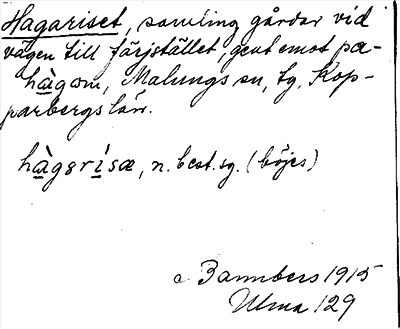 Hagariset, samling gårdar vid
vägen till färjstället, gent emot pa-
hàgom, Malungs sn, tg, Kop-
parbergs län.
hàgərísæ, n. best. sg. (böjes)
1915
Ulma 129